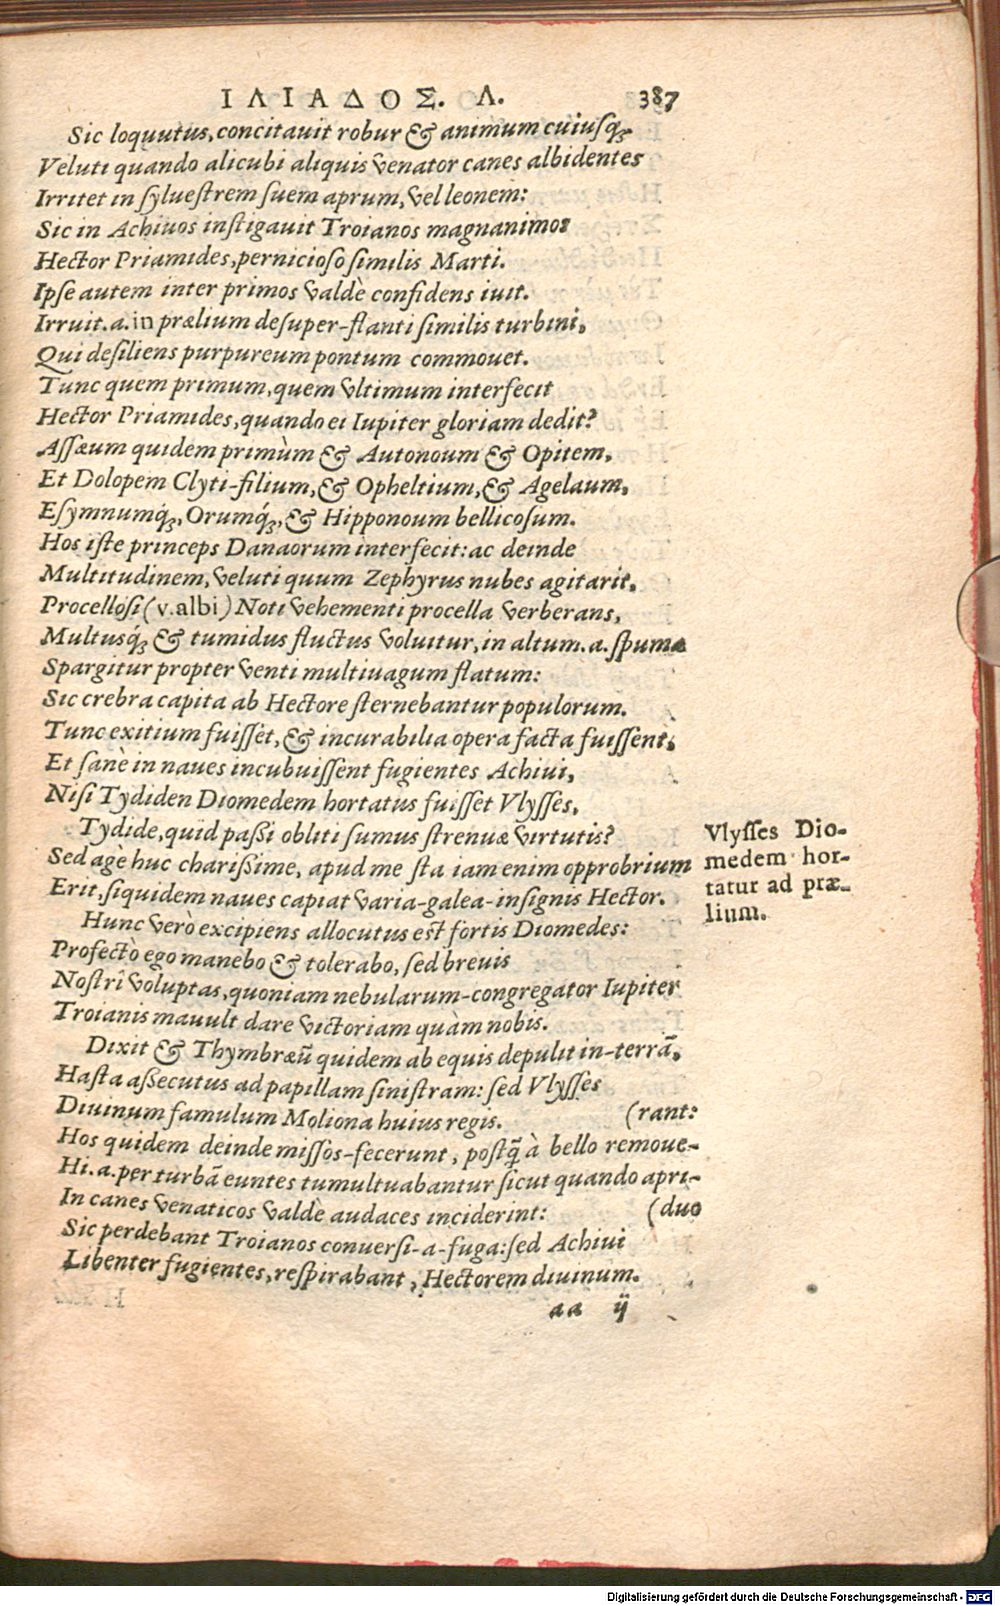 ΙΛΙΑΔΟΣ. Λ. 387
Sic loquutus, concitauit robur & animum cuiusq́;
Veluti quando alicubi aliquis venator canes albidentes
Irritet in syluestrem suem aprum, vel leonem:
Sic in Achiuos instigauit Troianos magnanimos
Hector Priamides, pernicioso similis Marti.
Ipse autem inter primos valdè confidens iuit.
Irruit.a.in prælium desuper-flanti similis turbini,
Qui desiliens purpureum pontum commouet.
Tunc quem primum, quem vltimum interfecit
Hector Priamides, quando ei Iupiter gloriam dedit?
Assæum quidem primùm & Autonoum & Opitem,
Et Dolopem Clyti-filium, & Opheltium, & Agelaum,
Esymnumq́;, Orumq́;, & Hipponoum bellicosum.
Hos iste princeps Danaorum interfecit: ac deinde
Multitudinem, veluti quum Zephyrus nubes agitarit,
Procellosi (v.albi) Noti vehementi procella verberans,
Multusq́; & tumidus fluctus voluitur, in altum.a.spuma
Spargitur propter venti multiuagum flatum:
Sic crebra capita ab Hectore sternebantur populorum.
Tunc exitium fuisset, & incurabilia opera facta fuissent,
Et sanè in naues incubuissent fugientes Achiui,
Nisi Tydiden Diomedem hortatus fuisset Vlysses,
Tydide, quid paßi obliti sumus strenuæ virtutis?
Sed agè huc charißime, apud me sta iam enim opprobrium
Erit, siquidem naues capiat varia-galea-insignis Hector.
Vlysses Dio-
medem hor-
tatur ad præ-
lium.
Hunc verò excipiens allocutus est fortis Diomedes:
Profectò ego manebo & tolerabo, sed breuis
Nostrî voluptas, quoniam nebularum-congregator Iupiter
Troianis mauult dare victoriam quàm nobis.
Dixit & Thymbræū quidem ab equis depulit in-terrā,
Hasta aßecutus ad papillam sinistram: sed Vlysses
Diuinum famulum Moliona huius regis. (rant:
Hos quidem deinde missos-fecerunt, postq̄ à bello remoue-
Hi.a.per turbā euntes tumultuabantur sicut quando apri-
In canes venaticos valdè audaces inciderint: (duo
Sic perdebant Troianos conuersi-a-fuga: sed Achiui
Libenter fugientes, respirabant, Hectorem diuinum.
aa ij
Digitalisierung gefördert durch die Deutsche Forschungsgemeinschaft - DFG